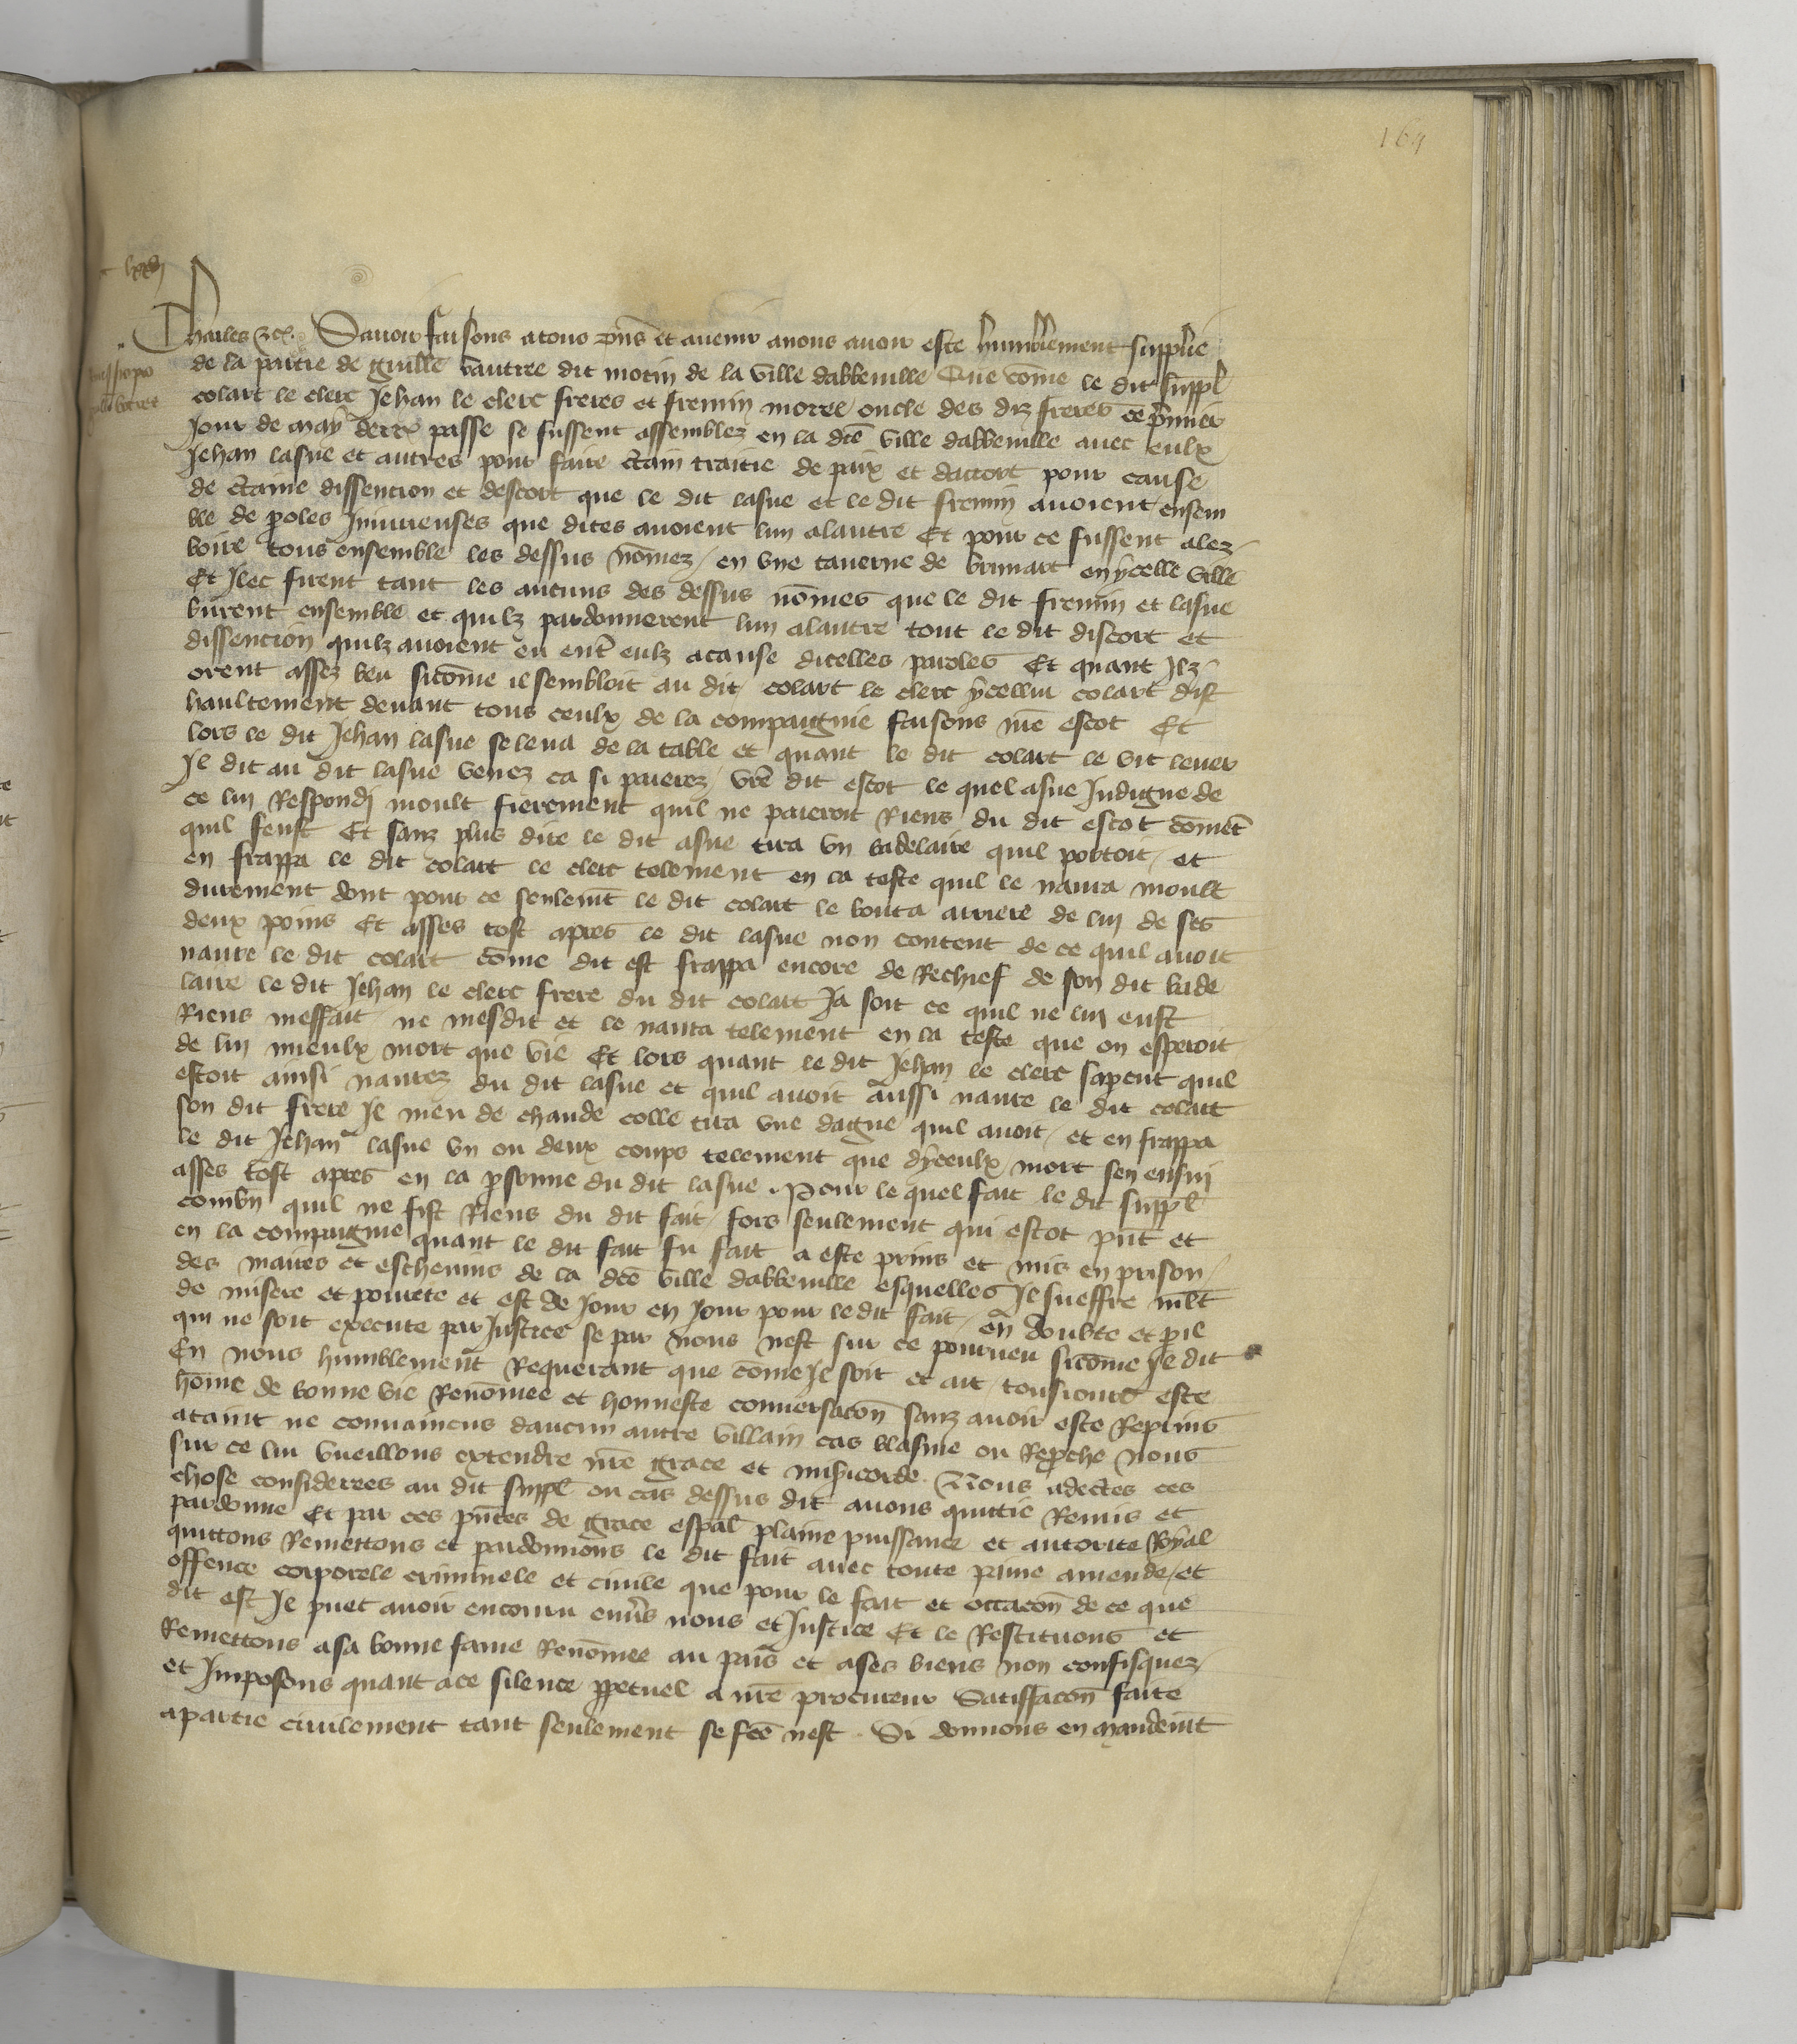 164
Charles etc. Savoir faisons a tous pns et avenir a nous avoir este humblement supplie
de la partie de Guille vautree dit motin de la ville dabbeville Que come le dit suppl
colart le clerc Jehan le clerc freres et fremin morel oncle des diz freres ce premier
Jour de may derrx passe se fussent assemblez en la dce ville dabbeville avec eulx
Jehan lasne et autres pour faire ctain traitie de paix et dacort pour cause
de ctaine dissencion et descort que le dit lasne et le dit fremin avoient ensem
ble de poles Iniurieuses que dites avoient lun a lautre Et pour ce fussent alez
boire tous ensemble les dessus nomez en une taverne de en ycelle ville
Et Ilec firent tant les aucuns des dessus nomes que le dit fremin et lasne
burent ensemble et quilz pardonnerent lun a lautre tout le dit discort et
dissencion quilz avoient eu ent eulz a cause dicelles paroles Et quant Ilz
orent assez beu sicome il sembloit au dit colart le clerc ycellui colart dist
haultement devant tous ceulx de la compaignie faisons nre escot Et
lors le dit Jehan lasne se leva de la table et quant le dit colart le vit lever
Il dit au dit lasne venez ca si paierez vre dit escot le quel asne Indigne de
ce lui Respondi moult fierement quil ne paieroit Riens du dit escot coment
quil feust Et sanz plus dire le dit asne tira un badelaire quil portoit et
en frappa le dit colart le clerc telement en la teste quil le navra moult
durement dont pour ce seulemt le dit colart le bouta arriere de lui de ses
deux poins Et asses tost apres le dit lasne non content de ce quil avoit
navre le dit colart come dit est frappa encore de Rechief de son dit bade
laire le dit Jehan le clerc frere du dit colart Ja soit ce quil ne lui eust
Riens meffait ne mesdit et le navra telement en la teste que on esperoit
de lui mieulx mort que vie Et lors quant le dit Jehan le clerc sapceut quil
estoit ainsi navrez du dit lasne et quil avoit aussi navre le dit colart
son dit frere Il meu de chaude colle tira une dague quil avoit et en frappa
le dit Jehan lasne un ou deux coups telement que dyceulx mort sen ensui
asses tost apres en la psonne du dit lasne. Pour le quel fait le dit suppl
combn quil ne fist Riens du dit fait fors seulement qui estot pnt et
en la compaignie quant le dit fait fu fait a este prins et mis en prison
des maires et eschevins de la dce ville dabbeville esquelles Il sueffre mlt
de misere et povrete et est de Jour en Jour pour le dit fait en doubte et pil
qui ne soit execute par Justice se par nous nest sur ce pourveu sicome Il dit
En nous humblement Requerant que come Il soit et ait tousiours este
home de bonne vie Renomee et honneste conversacon sanz avoir este Reprins
ataint ne convaincus daucun autre villain cas blasme ou Repche Nous
sur ce lui vueillons extendre nre grace et misicorde. Nous adectes ces
chose considerees au dit suppl ou cas dessus dit avons quittie Remis et
pardonne Et par ces pntes de grace espal plaine puissance et autorite Royal
quittons Remettons et pardonnons le dit fait avec toute paine amende et
offence corporele criminele et civile que pour le fait et occacon de ce que
dit est Il puet avoir encouru envs nous et Justice Et le Restituons et
Remettons a sa bonne fame Renomee au pais et a ses biens non confisquez
et Imposons quant a ce silence ppetuel a nre procureur Satisfacon faite
a partie civilement tant seulement se fce nest. Si donnons en mandemt